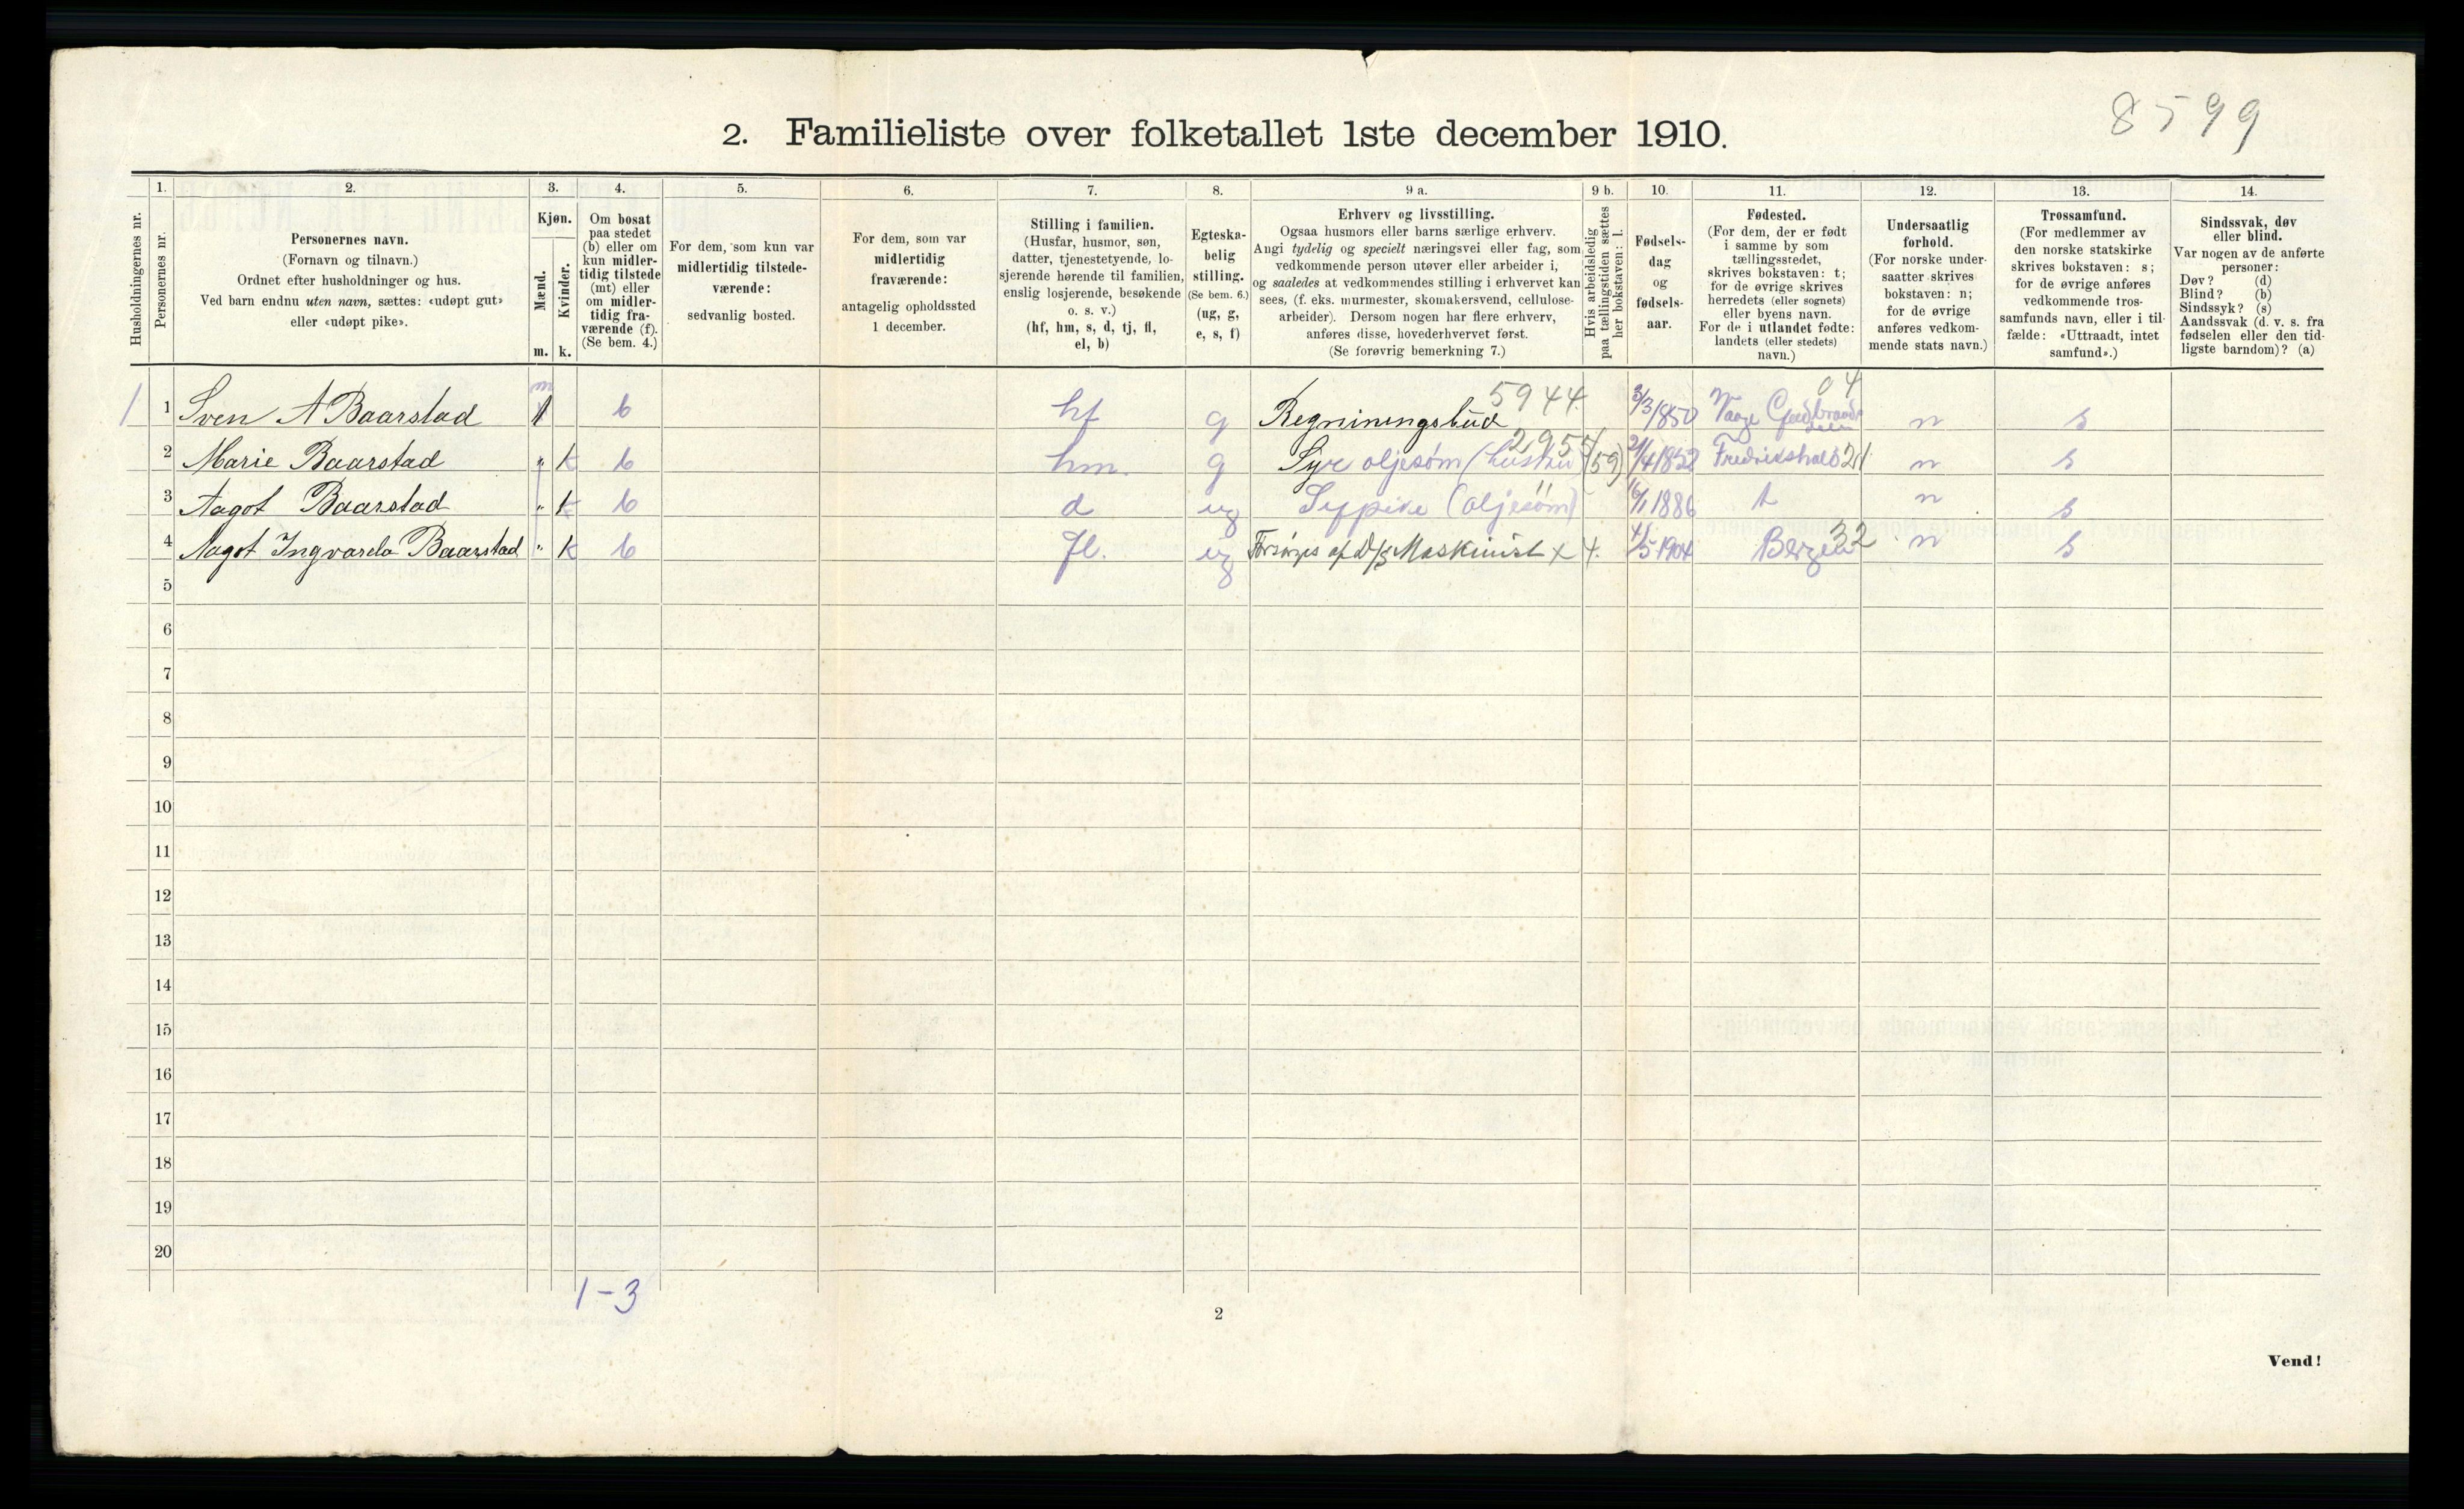 8599
2. Familieliste over folketallet 1ste december 1910.
Husholdningernes nr.
1.
Personernes nr.
2.
Personernes navn.
(Fornavn og tilnavn.)
Ordnet efter husholdninger og hus.
Ved barn endnu uten navn, sættes: «udøpt gut»
eller «udøpt pike».
3.
Kjøn.
Mænd.
m.
Kvinder.
k.
4.
Om bosat
paa stedet
(b) eller om
kun midler-
tidig tilstede
(mt) eller
om midler-
tidig fra-
værende (f).
(Se bem. 4.)
5.
For dem, som kun var
midlertidig tilstede-
værende:
sedvanlig bosted.
6.
For dem, som var
midlertidig
fraværende:
antagelig opholdssted
1 december.
7.
Stilling i familien.
(Husfar, husmor, søn,
datter, tjenestetyende, lo-
sjerende hørende til familien,
enslig losjerende, besøkende
o. s. v.)
(hf, hm, s, d, tj, fl,
el, b)
8.
Egteska-
belig
stilling.
(Se bem. 6.)
(ug, g,
e, s, f)
9 a.
Erhverv og livsstilling.
Ogsaa husmors eller barns særlige erhverv.
Angi tydelig og specielt næringsvei eller fag, som
vedkommende person utøver eller arbeider i,
og saaledes at vedkommendes stilling i erhvervet kan
sees, (f. eks. murmester, skomakersvend, cellulose-
arbeider). Dersom nogen har flere erhverv,
anføres disse, hovederhvervet først.
(Se forøvrig bemerkning 7.)
9 b.
Hvis arbeidsledig
paa tællingstiden sættes
her bokstaven: l.
10.
Fødsels-
dag
og
fødsels-
aar.
11.
Fødested.
(For dem, der er født
i samme by som
tællingsstedet,
skrives bokstaven: t;
for de øvrige skrives
herredets (eller sognets)
eller byens navn.
For de i utlandet fødte:
landets (eller stedets)
navn.)
12.
Undersaatlig
forhold.
(For norske under-
saatter skrives
bokstaven: n;
for de øvrige
anføres vedkom-
mende stats navn.)
13.
Trossamfund.
(For medlemmer av
den norske statskirke
skrives bokstaven: s;
for de øvrige anføres
vedkommende tros-
samfunds navn, eller i til-
fælde: «Uttraadt, intet
samfund».)
14.
Sindssvak, døv
eller blind.
Var nogen av de anførte
personer:
Døv? (d)
Blind? (b)
Sindssyk? (s)
Aandssvak (d. v. s. fra
fødselen eller den tid-
ligste barndom)? (a)
1 1 Sven A Baarstad m 1 b hf g Regnningsbud 5944 3/3 1850 Vaage Gudbrandsdalen 04 n s
2 Marie Baarstad " k b hm. g Syr oljesøm (hustru) 2955 (59) 1852 Fredrikshald 21 n s
3 Aagot Baarstad " k b d ug Sypike (oljesøm) " 1886 t n s
4 Aagot Ingvarda Baarstad " k b fl. ug Forsørges af D/S Maskinist x 4. 4/5 1904 Bergen 32 n s
5
6
7
8
9
10
11
12
13
14
15
16
17
18
19
20
1-3
2
Vend!